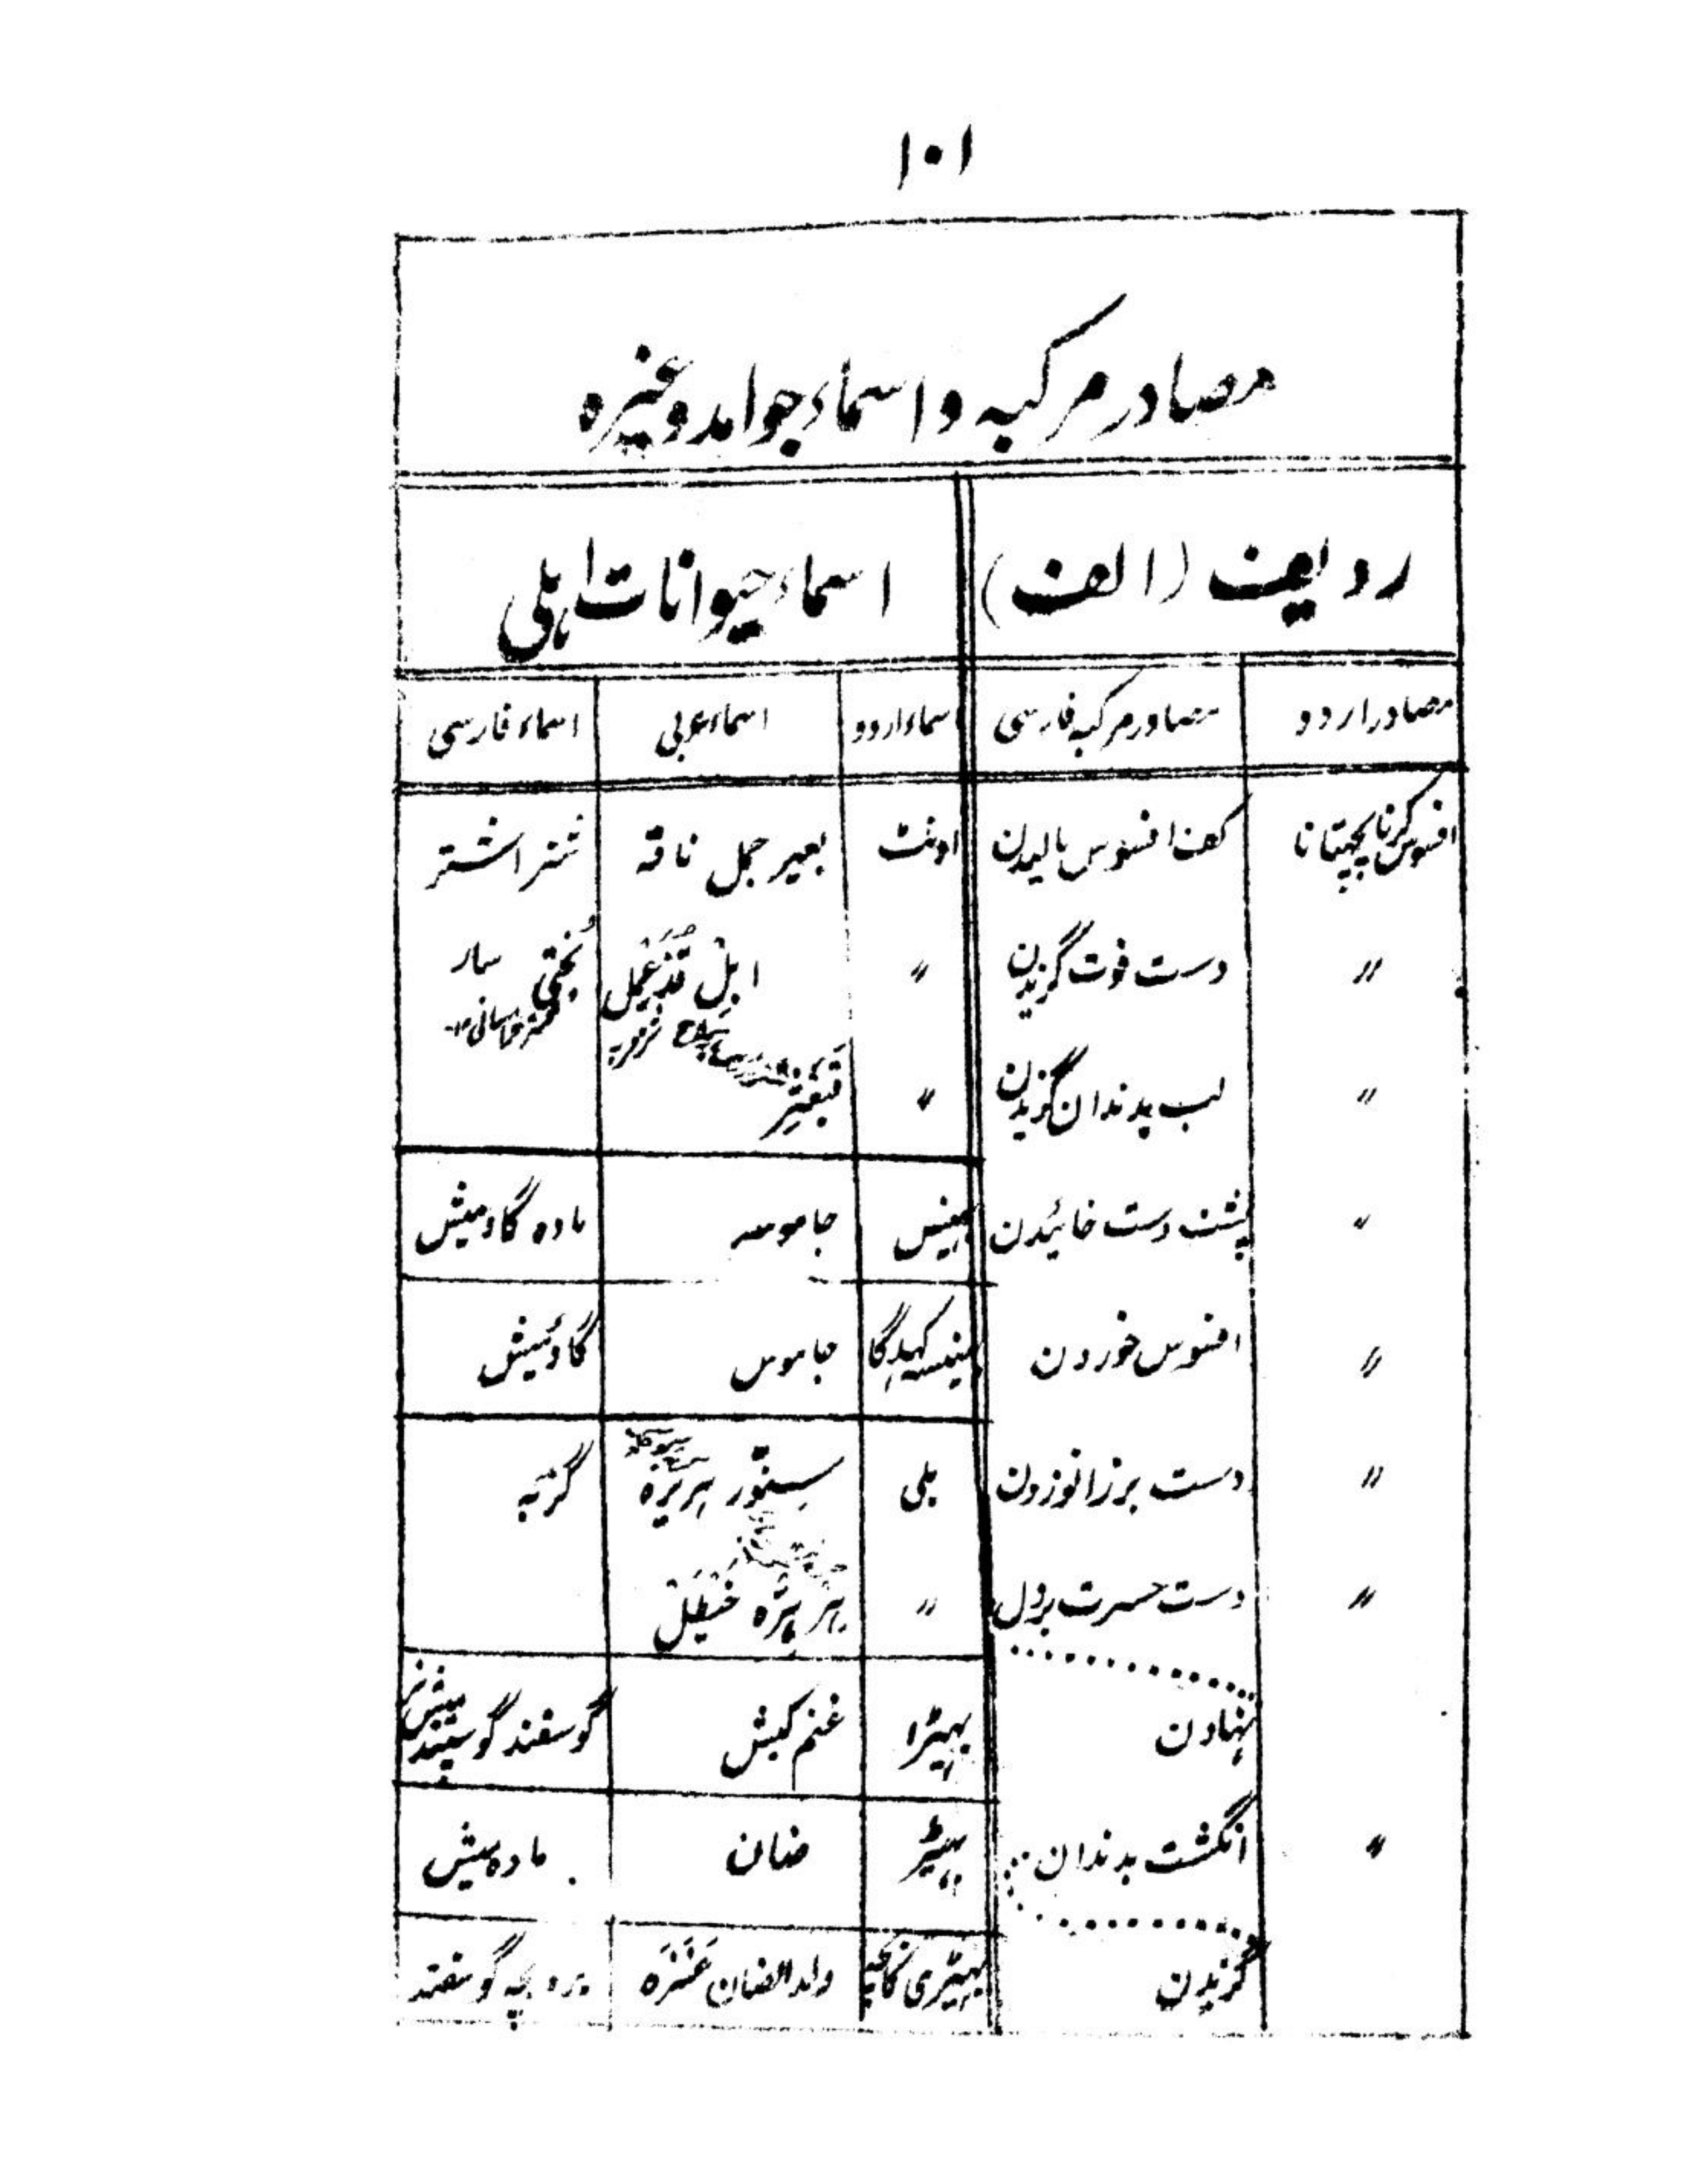 ۱۰۱
مصادر مرکبہ و اسماء جوامد وغیرہ
ردیف (الف) اسماء حیوانات اہلی
مصادر اردو مصادر مرکبہ فارسی اسماء اردو اسماء عربی اسماء فارسی
افسوس کرنا پچھتانا کف افسوس مالیدن اونٹ بعیر جمل ناقہ شتر اشتر
〃 دست فوت گزیدن 〃 ابل بُختی
〃 لب بدندان گزیدن 〃
〃 پشت دست خائیدن بھینس جاموسہ مادہ گاومیش
〃 افسوس خوردن جاموس گاؤمیش
〃 دست برزانو زدن بلی سنّور ہریرہ گربہ
〃 دست حسرت بردل 〃 خَیطَل
نہادن بہیڑا غنم کبش گوسفند گوسپند
〃 انگشت بدندان بہیڑ ضان مادہ میش
گزیدن بہیڑی کا بچہ ولد الضان بچہ گوسفند